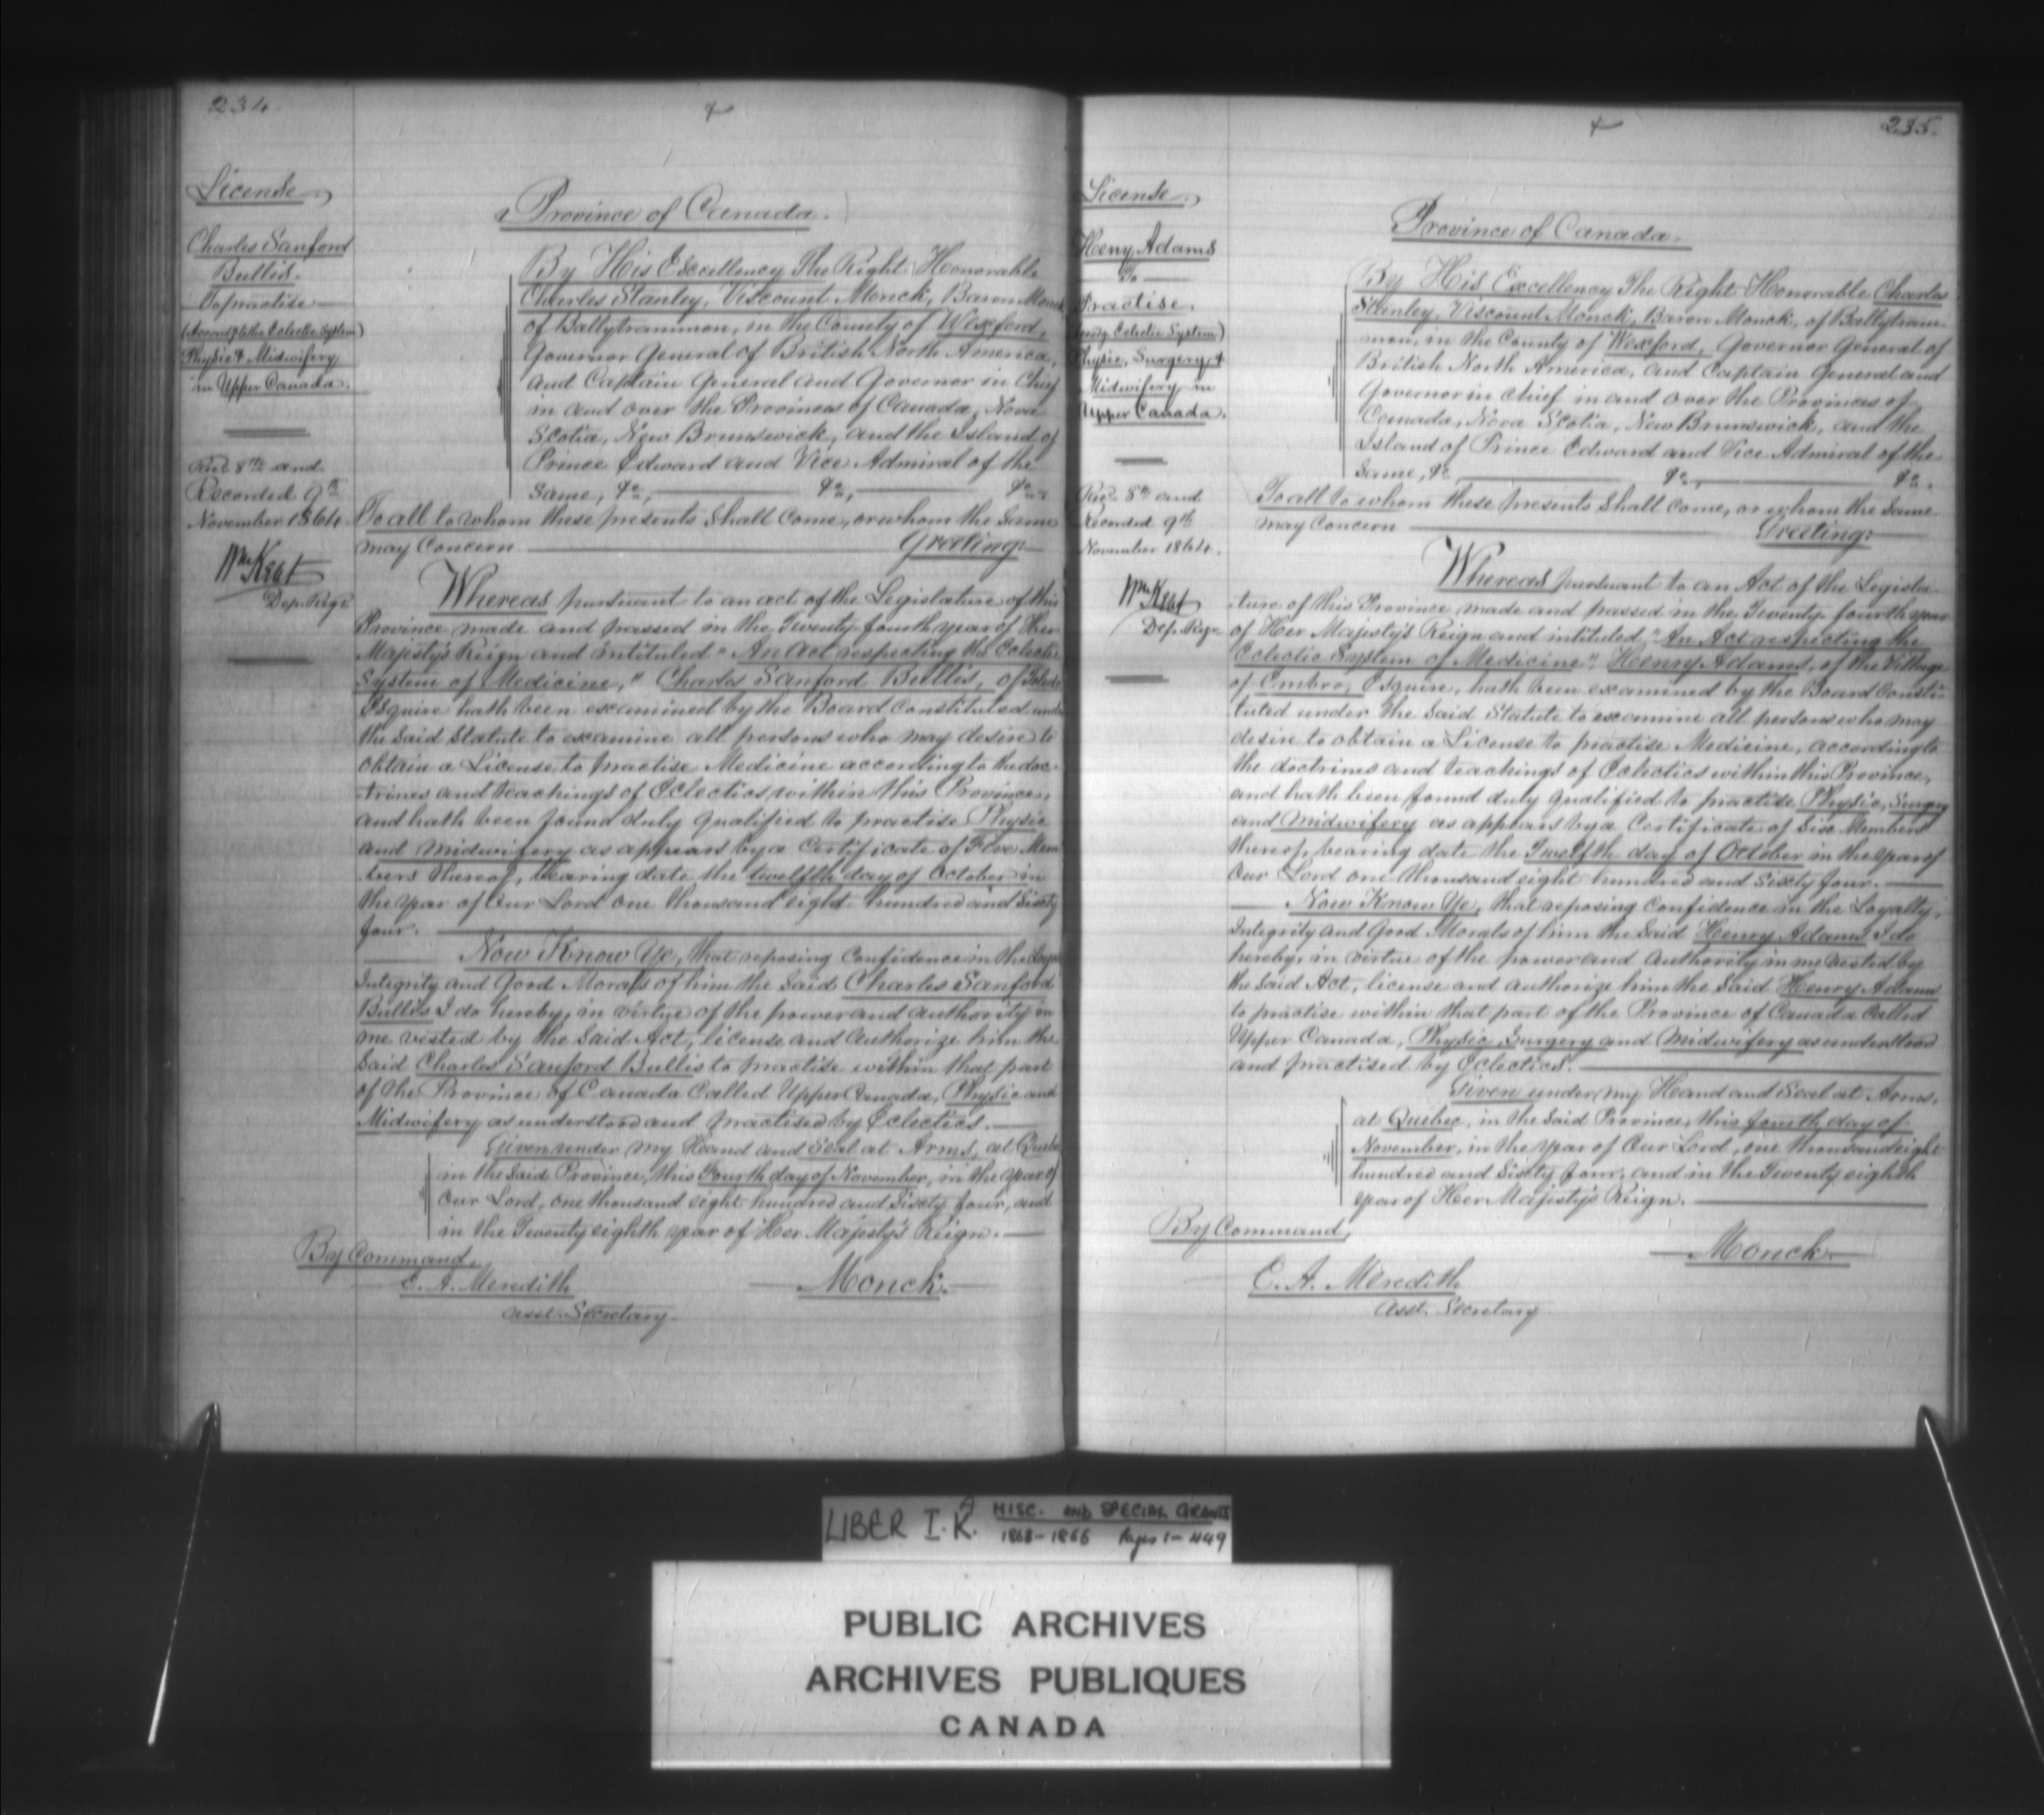 234
License
Charles Sanford
Bullis.
To practise
(Accordg to the Eclectic System)
Physic & Midwifery
in Upper Canada.
Recd 8th and
Recorded 9th
November 1864.
Wm Kent
Dep. Regr
Province of Canada.
By His Excellency The Right Honorable
Charles Stanley, Viscount Monck, Baron Monck
of Ballytrammon, in the County of Wexford,
Governor General of British North America,
and Captain General and Governor in Chief
in and over the Provinces of Canada, Nova
Scotia, New Brunswick, and the Island of
Prince Edward and Vice Admiral of the
Same, &c, &c, &c.
To all to whom these presents shall come, or whom the same
may Concern Greeting:
Whereas pursuant to an act of the Legislature of this
Province made and passed in the Twenty-fourth year of Her
Majesty's Reign and intituled "An Act respecting the Eclectic
System of Medicine," Charles Sanford Bullis, of
Esquire hath been examined by the Board Constituted under
the said Statute to examine all persons who may desire to
obtain a License to practise Medicine according to the doc-
trines and teachings of Eclectics within this Province,
and hath been found duly qualified to practise Physic
and Midwifery as appears by a Certificate of Five Mem
bers thereof, bearing date the twelfth day of October in
the year of Our Lord one thousand eight hundred and Sixty
four.
Now Know Ye, that reposing confidence in the Loyalty
Integrity and Good Morals of him the said Charles Sanford
Bullis I do hereby, in virtue of the power and authority in
me vested by the said Act, license and authorize him the
said Charles Sanford Bullis to practise within that part
of the Province of Canada Called Upper Canada, Physic and
Midwifery as understood and practised by Eclectics.
Given under my Hand and Seal at Arms, at Quebec
in the said Province, this Fourth day of November, in the year of
Our Lord, one thousand eight hundred and Sixty four, and
in the Twenty eighth year of Her Majesty's Reign.
By Command,
E. A. Meredith Monck.
Asst. Secretary
235.
License
Henry Adams
To
Practise.
(Accordg Eclectic System)
Physic, Surgery &
Midwifery in
Upper Canada.
Recd 8th and
Recorded 9th
November 1864.
Wm Kent
Dep. Regr
Province of Canada.
By His Excellency The Right Honorable Charles
Stanley, Viscount Monck, Baron Monck, of Ballytram-
mon, in the County of Wexford, Governor General of
British North America, and Captain General and
Governor in Chief in and over the Provinces of
Canada, Nova Scotia, New Brunswick, and the
Island of Prince Edward and Vice Admiral of the
Same, &c &c, &c.
To all to whom these presents shall come, or whom the same
may Concern Greeting:
Whereas pursuant to an Act of the Legisla-
ture of this Province made and passed in the Twenty-fourth year
of Her Majesty's Reign and intituled "An Act respecting the
Eclectic System of Medicine", Henry Adams, of the Village
of Embro, Esquire, hath been examined by the Board Consti-
tuted under the said Statute to examine all persons who may
desire to obtain a License to practise Medicine, according to
the doctrines and teachings of Eclectics within this Province,
and hath been found duly qualified to practise Physic, Surgery
and Midwifery as appears by a Certificate of Six Members
thereof, bearing date the Twelfth day of October in the year of
Our Lord one thousand eight hundred and Sixty four.
Now Know Ye, that reposing confidence in the Loyalty,
Integrity and Good Morals of him the said Henry Adams I do
hereby, in virtue of the power and authority in me vested by
the said Act, license and authorize him the said Henry Adams
to practise within that part of the Province of Canada Called
Upper Canada, Physic, Surgery and Midwifery as understood
and practised by Eclectics.
Given under my Hand and Seal at Arms,
at Quebec, in the said Province, this fourth day of
November, in the year of Our Lord, one thousand eight
hundred and Sixty four, and in the Twenty eighth
year of Her Majesty's Reign.
By Command,
Monck.
E. A. Meredith
Asst. Secretary
LIBER I.K.A MISC. AND SPECIAL GRANTS
1863-1866 Pages 1-449
PUBLIC ARCHIVES
ARCHIVES PUBLIQUES
CANADA